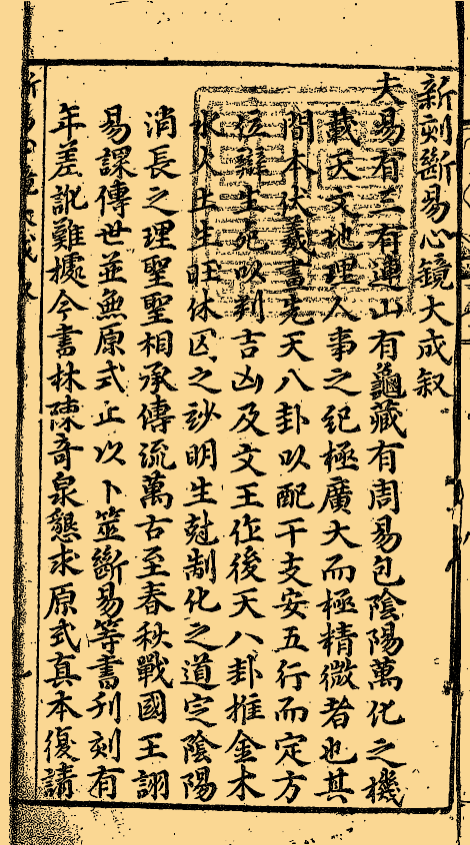 新刻斷易心鏡大成叙
夫易有三有連山有龜藏有周易包陰陽萬化之機
載天文地理人事之紀極廣大而極精微者也其
間本伏羲畫先天八卦以配干支安五行而定方
位辯生死以判吉凶及文王作後天八卦推金木
水火土生旺休囚之玅明生尅制化之道定陰陽
消長之理聖聖相承傳流萬古至春秋戰國王詡
易課傳世並無原式止次卜筮斷易等書刋刻有
年差訛難據今書林陳奇泉懇求原式真本復請